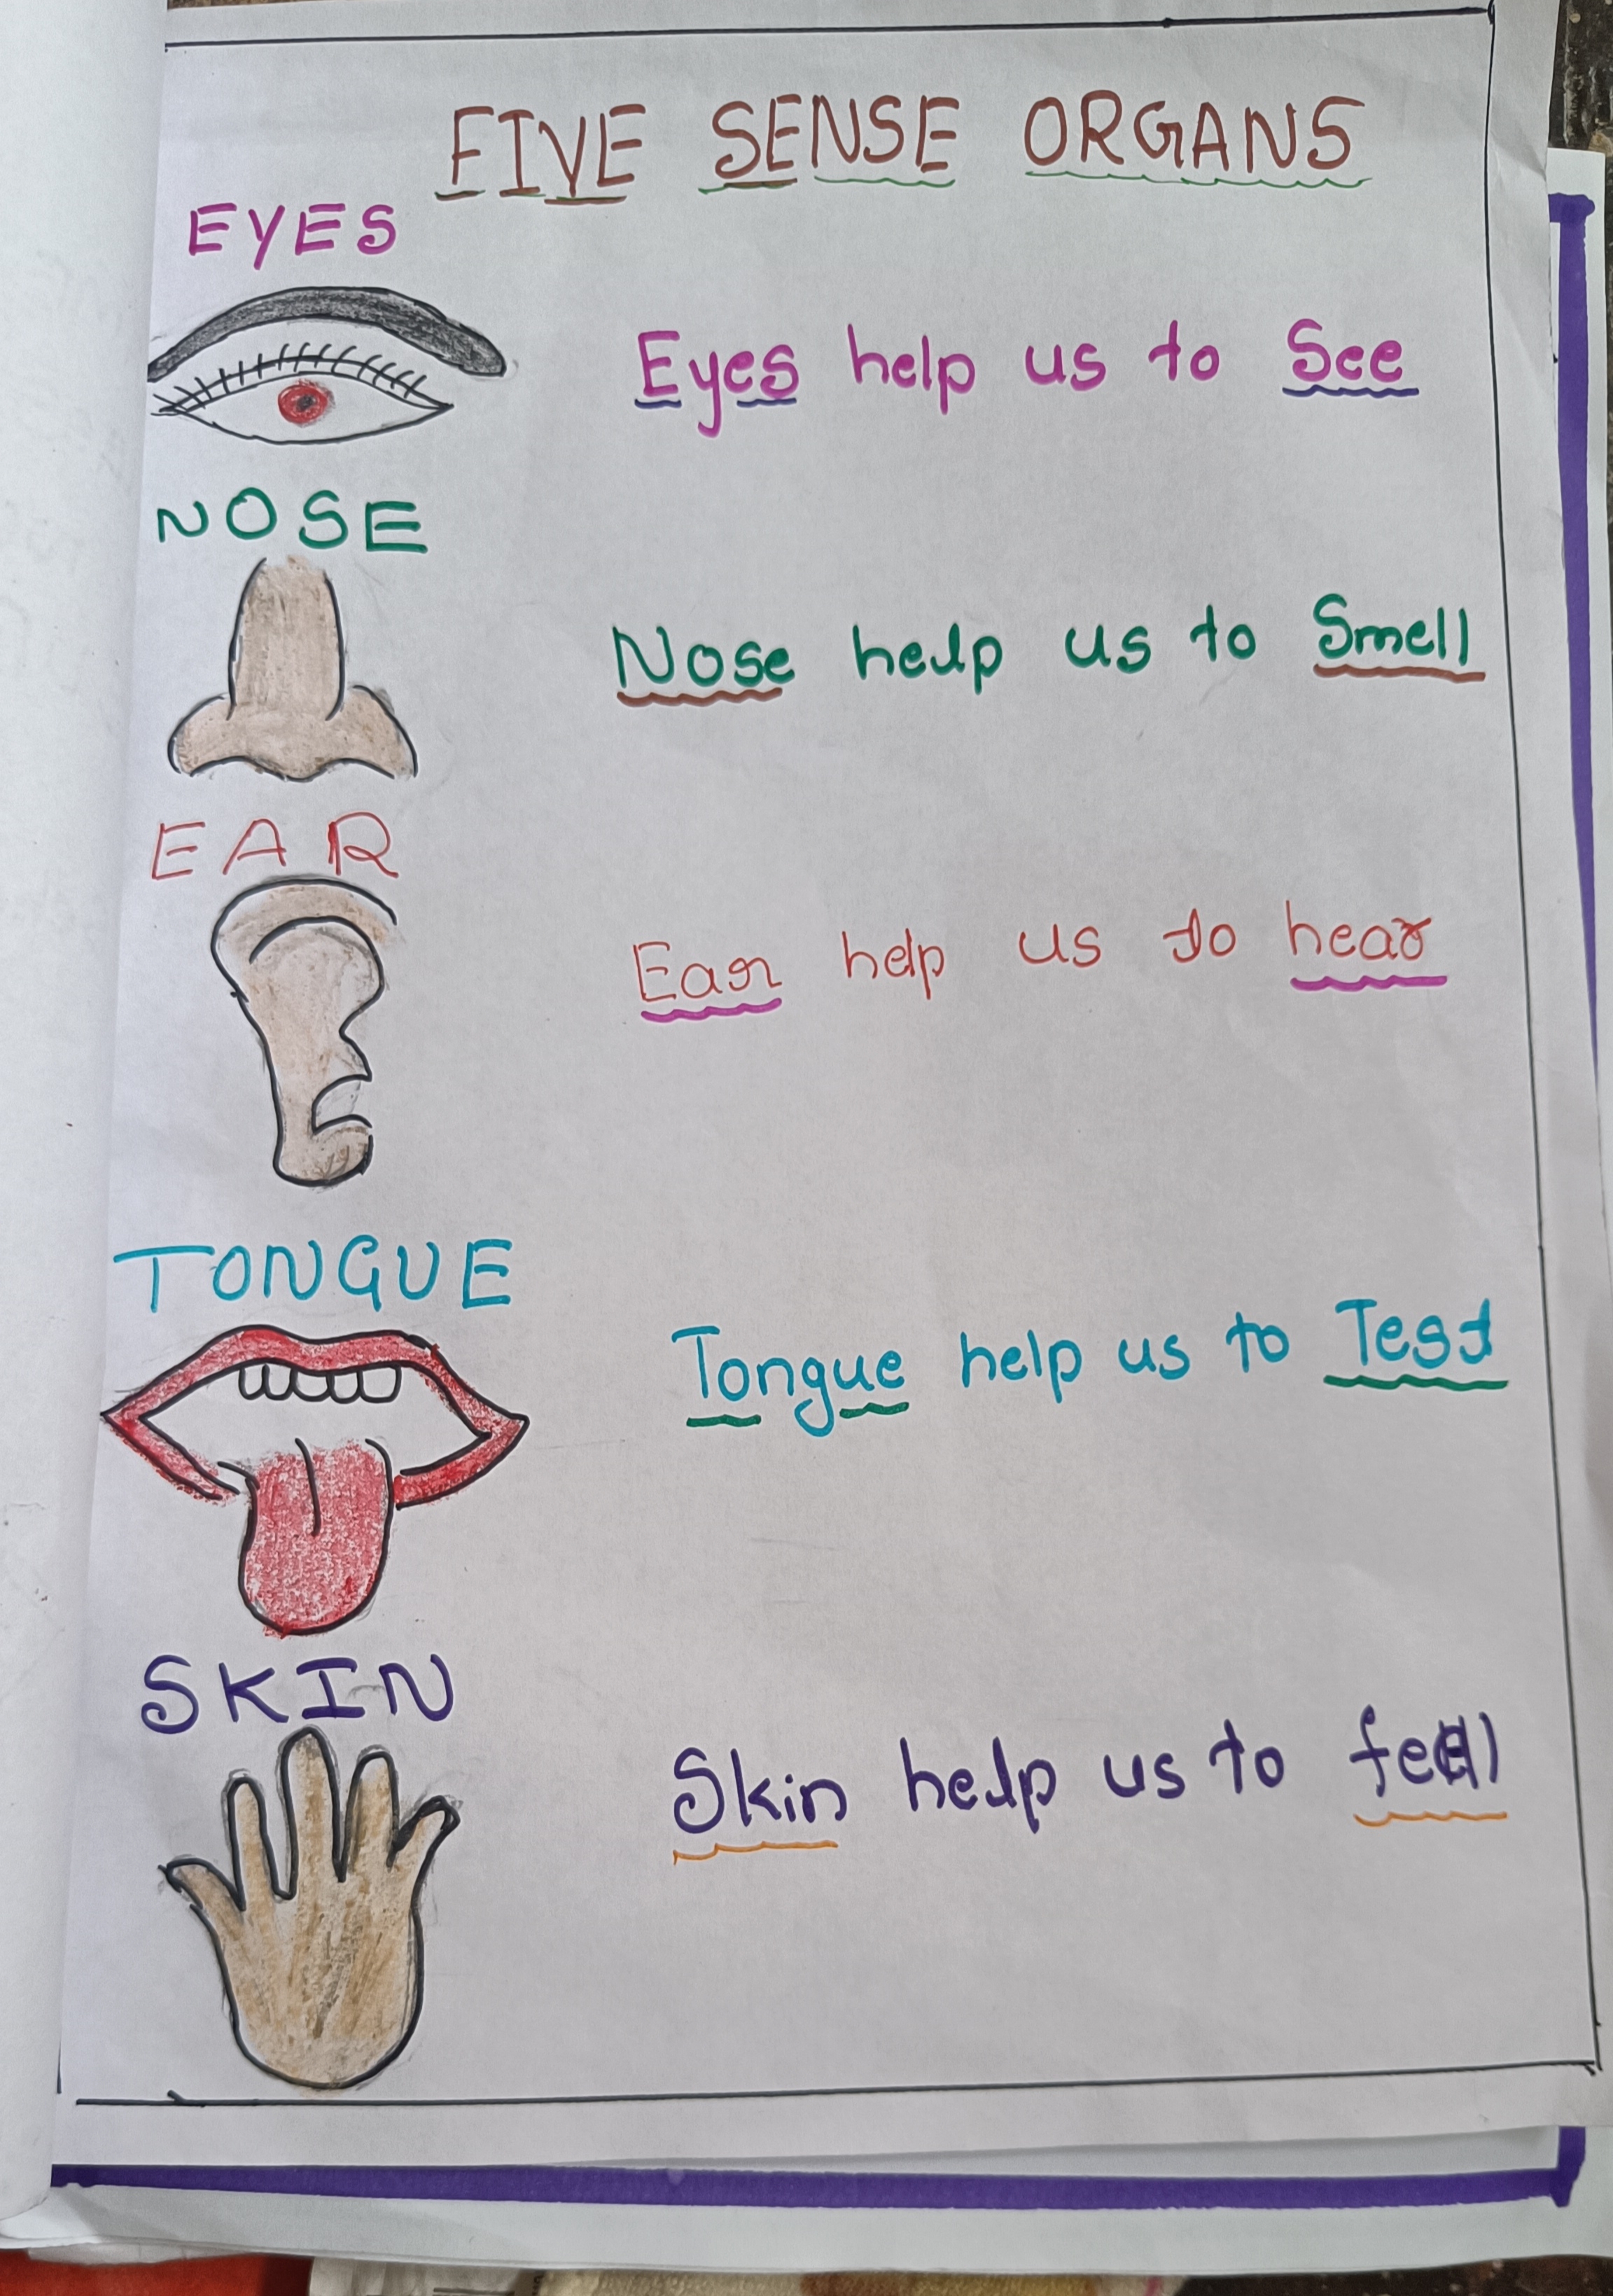 FIVE SENSE ORGANS
EYES
Eyes help us to See
NOSE
Nose help us to Smell
EAR
Ear help us to hear
TONGUE
Tongue help us to Test
SKIN
Skin help us to feel